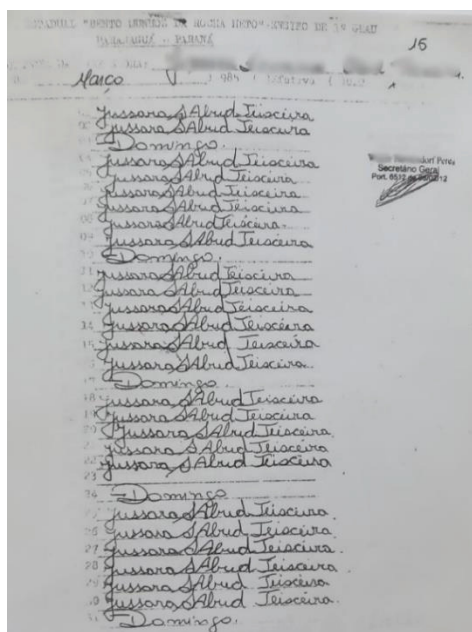 ESTADUAL "BENTO MUNHOZ DA ROCHA NETO" ENSINO DE 1º GRAU
PARANAGUÁ - PARANÁ
15
Março
Jussara S Abud Teixeira
Jussara S Abud Teixeira
Domingo.
Jussara S Abud Teixeira
Jussara S Abud Teixeira
Jussara S Abud Teixeira
Jussara S Abud Teixeira
Jussara S Abud Teixeira
Jussara S Abud Teixeira
Domingo.
Jussara S Abud Teixeira
Jussara S Abud Teixeira
Jussara S Abud Teixeira
14 Jussara S Abud Teixeira
15 Jussara S Abud Teixeira
Jussara S Abud Teixeira
Domingo.
18 Jussara S Abud Teixeira
19 Jussara S Abud Teixeira
20 Jussara S Abud Teixeira
21 Jussara S Abud Teixeira
22 Jussara S Abud Teixeira
23
24 Domingo
25 Jussara S Abud Teixeira
26 Jussara S Abud Teixeira.
27 Jussara S Abud Teixeira.
28 Jussara S Abud Teixeira
29 Jussara S Abud Teixeira
30 Jussara S Abud Teixeira.
31 Domingo.
Peres
Secretário Geral
Port. 6512